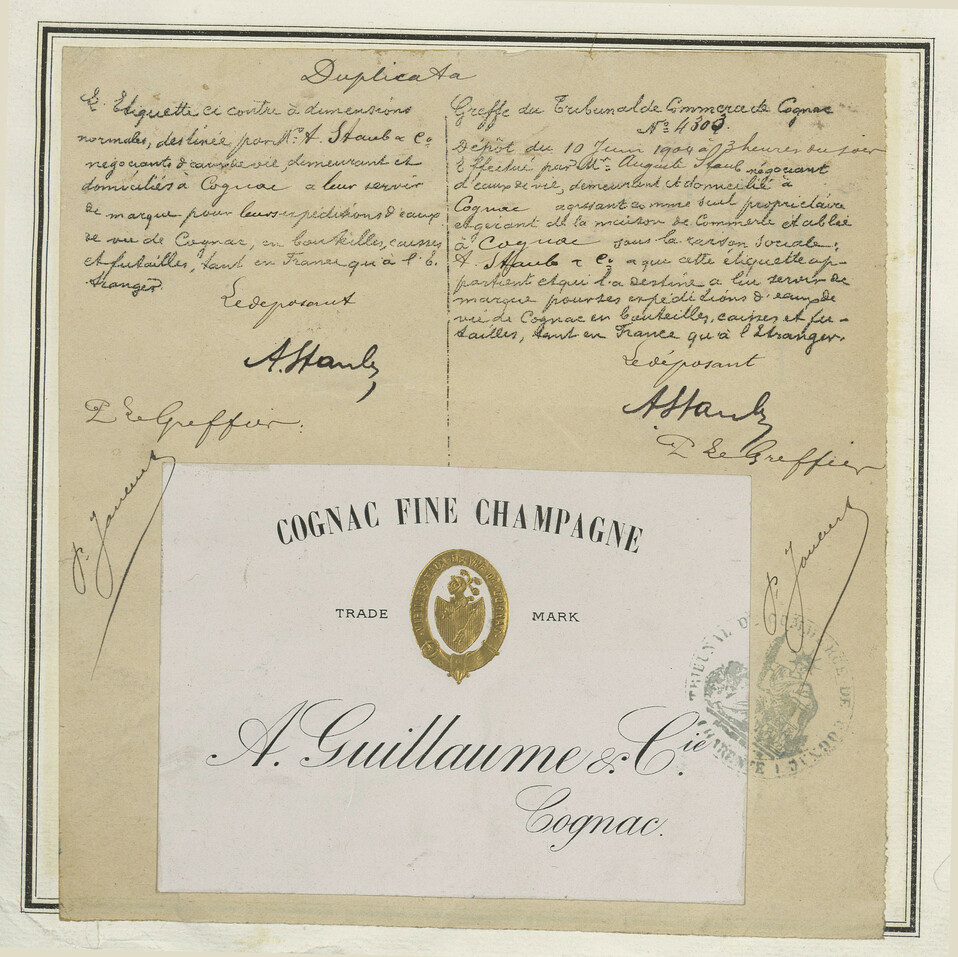 Duplicata
L'Etiquette ci contre à dimensions
normales, destinée par Mr. A. Staub & Co
négociants d'eau de vie, demeurant et
domiciliés à Cognac a leur servir
de marque pour leurs expéditions d'eaux
de vie de Cognac, en bouteilles, caisses
et futailles, tant en France qu'à l'E-
tranger.
Le déposant
A. Staub
P. Le Greffier.
Greffe du Tribunal de Commerce de Cognac
No. 4303.
Dépôt du 10 Juin 1904 à 3 heures du soir
Effectué par Mr. Auguste Staub négociant
d'eaux de vie, demeurant et domicilié à
Cognac agissant comme seul propriétaire
et gérant de la maison de Commerce établie
à Cognac sous la raison sociale:
A. Staub & Co a qui cette étiquette ap-
partient et qui l'a destine a lui servir de
marque pour ses expéditions d'eaux de
vie de Cognac en bouteilles, caisses et fu-
tailles, tant en France qu'à l'Etranger.
Le déposant
A Staub
P. Le Greffier
COGNAC FINE CHAMPAGNE
TRADE MARK
A. Guillaume & Cie.
Cognac.
TRIBUNAL DE COMMERCE DE COGNAC
CHARENTE